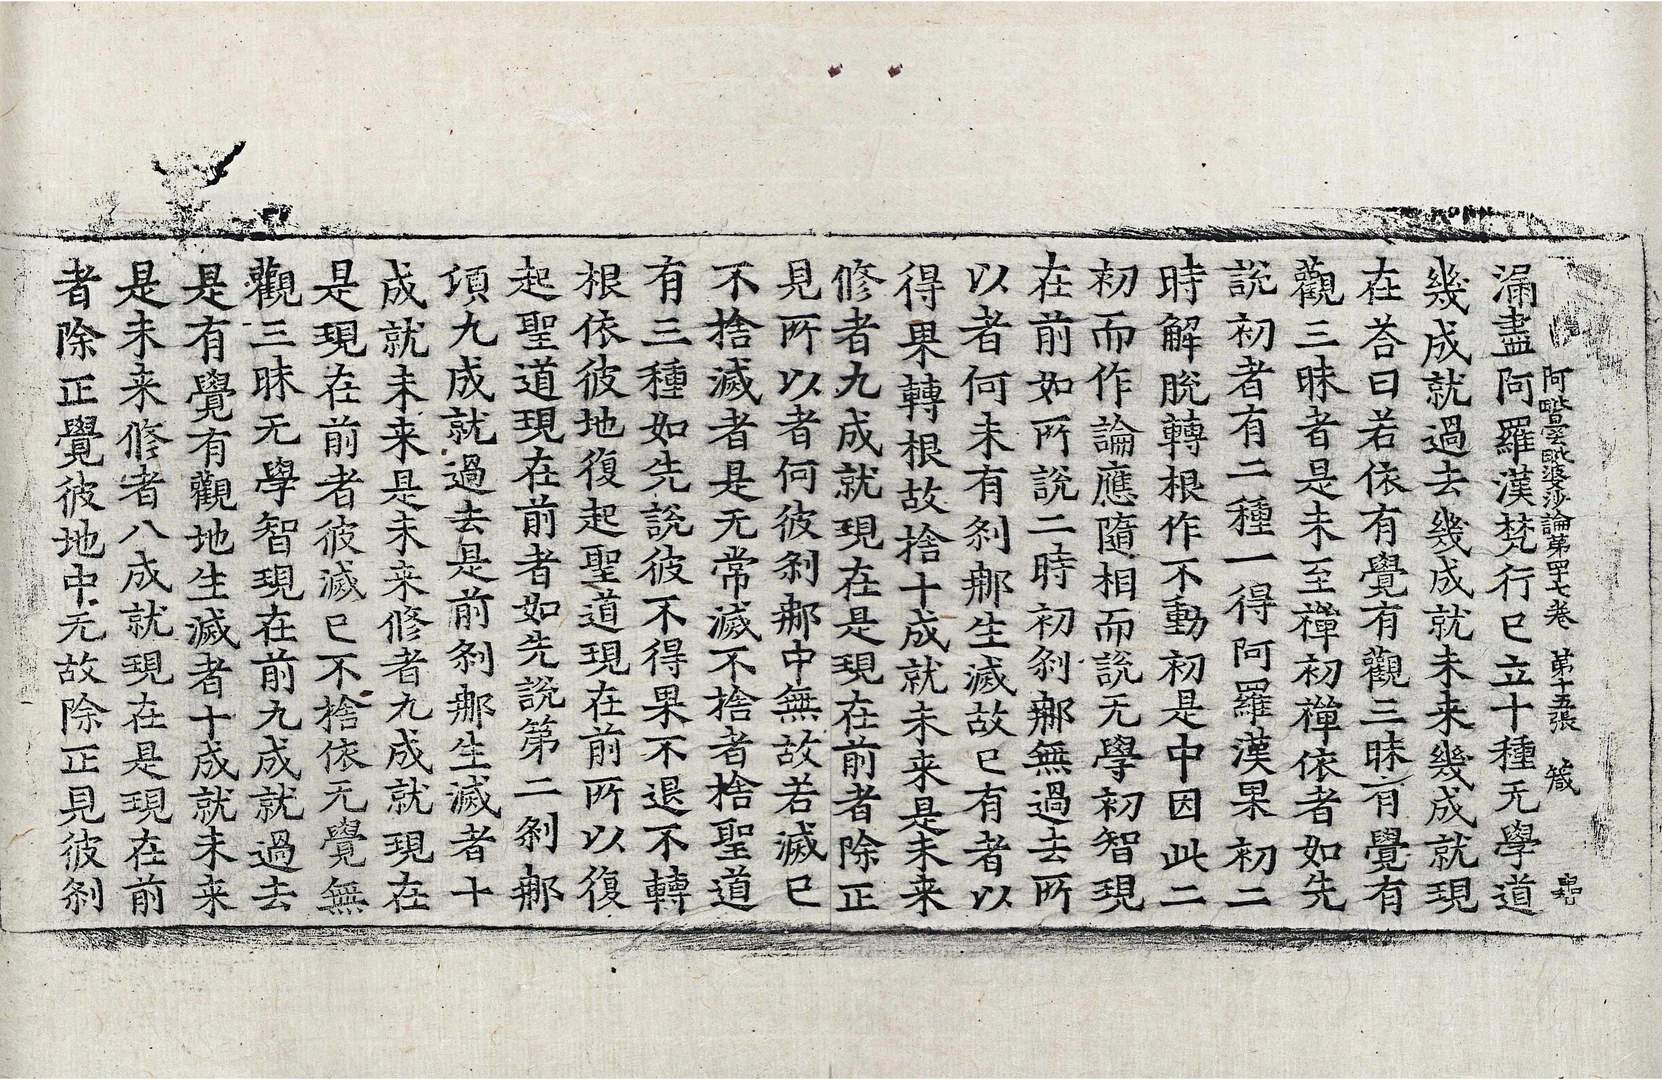 阿毗曇毗婆沙論第四十七卷 第十五張 箴
漏盡阿羅漢梵行已立十種无學道
幾成就過去幾成就未来幾成就現
在荅曰若依有覺有觀三昧有覺有
觀三昧者是未至禪初禪依者如先
說初者有二種一得阿羅漢果初二
時解脫轉根作不動初是中因此二
初而作論應隨相而說无學初智現
在前如所說二時初剎那無過去所
以者何未有剎那生滅故已有者以
得果轉根故捨十成就未来是未来
修者九成就現在是現在前者除正
見所以者何彼剎那中無故若滅已
不捨滅者是无常滅不捨者捨聖道
有三種如先說彼不得果不退不轉
根依彼地復起聖道現在前所以復
起聖道現在前者如先說第二剎那
頃九成就過去是前剎那生滅者十
成就未来是未来修者九成就現在
是現在前者彼滅已不捨依无覺無
觀三昧无學智現在前九成就過去
是有覺有觀地生滅者十成就未来
是未来修者八成就現在是現在前
者除正覺彼地中无故除正見彼剎